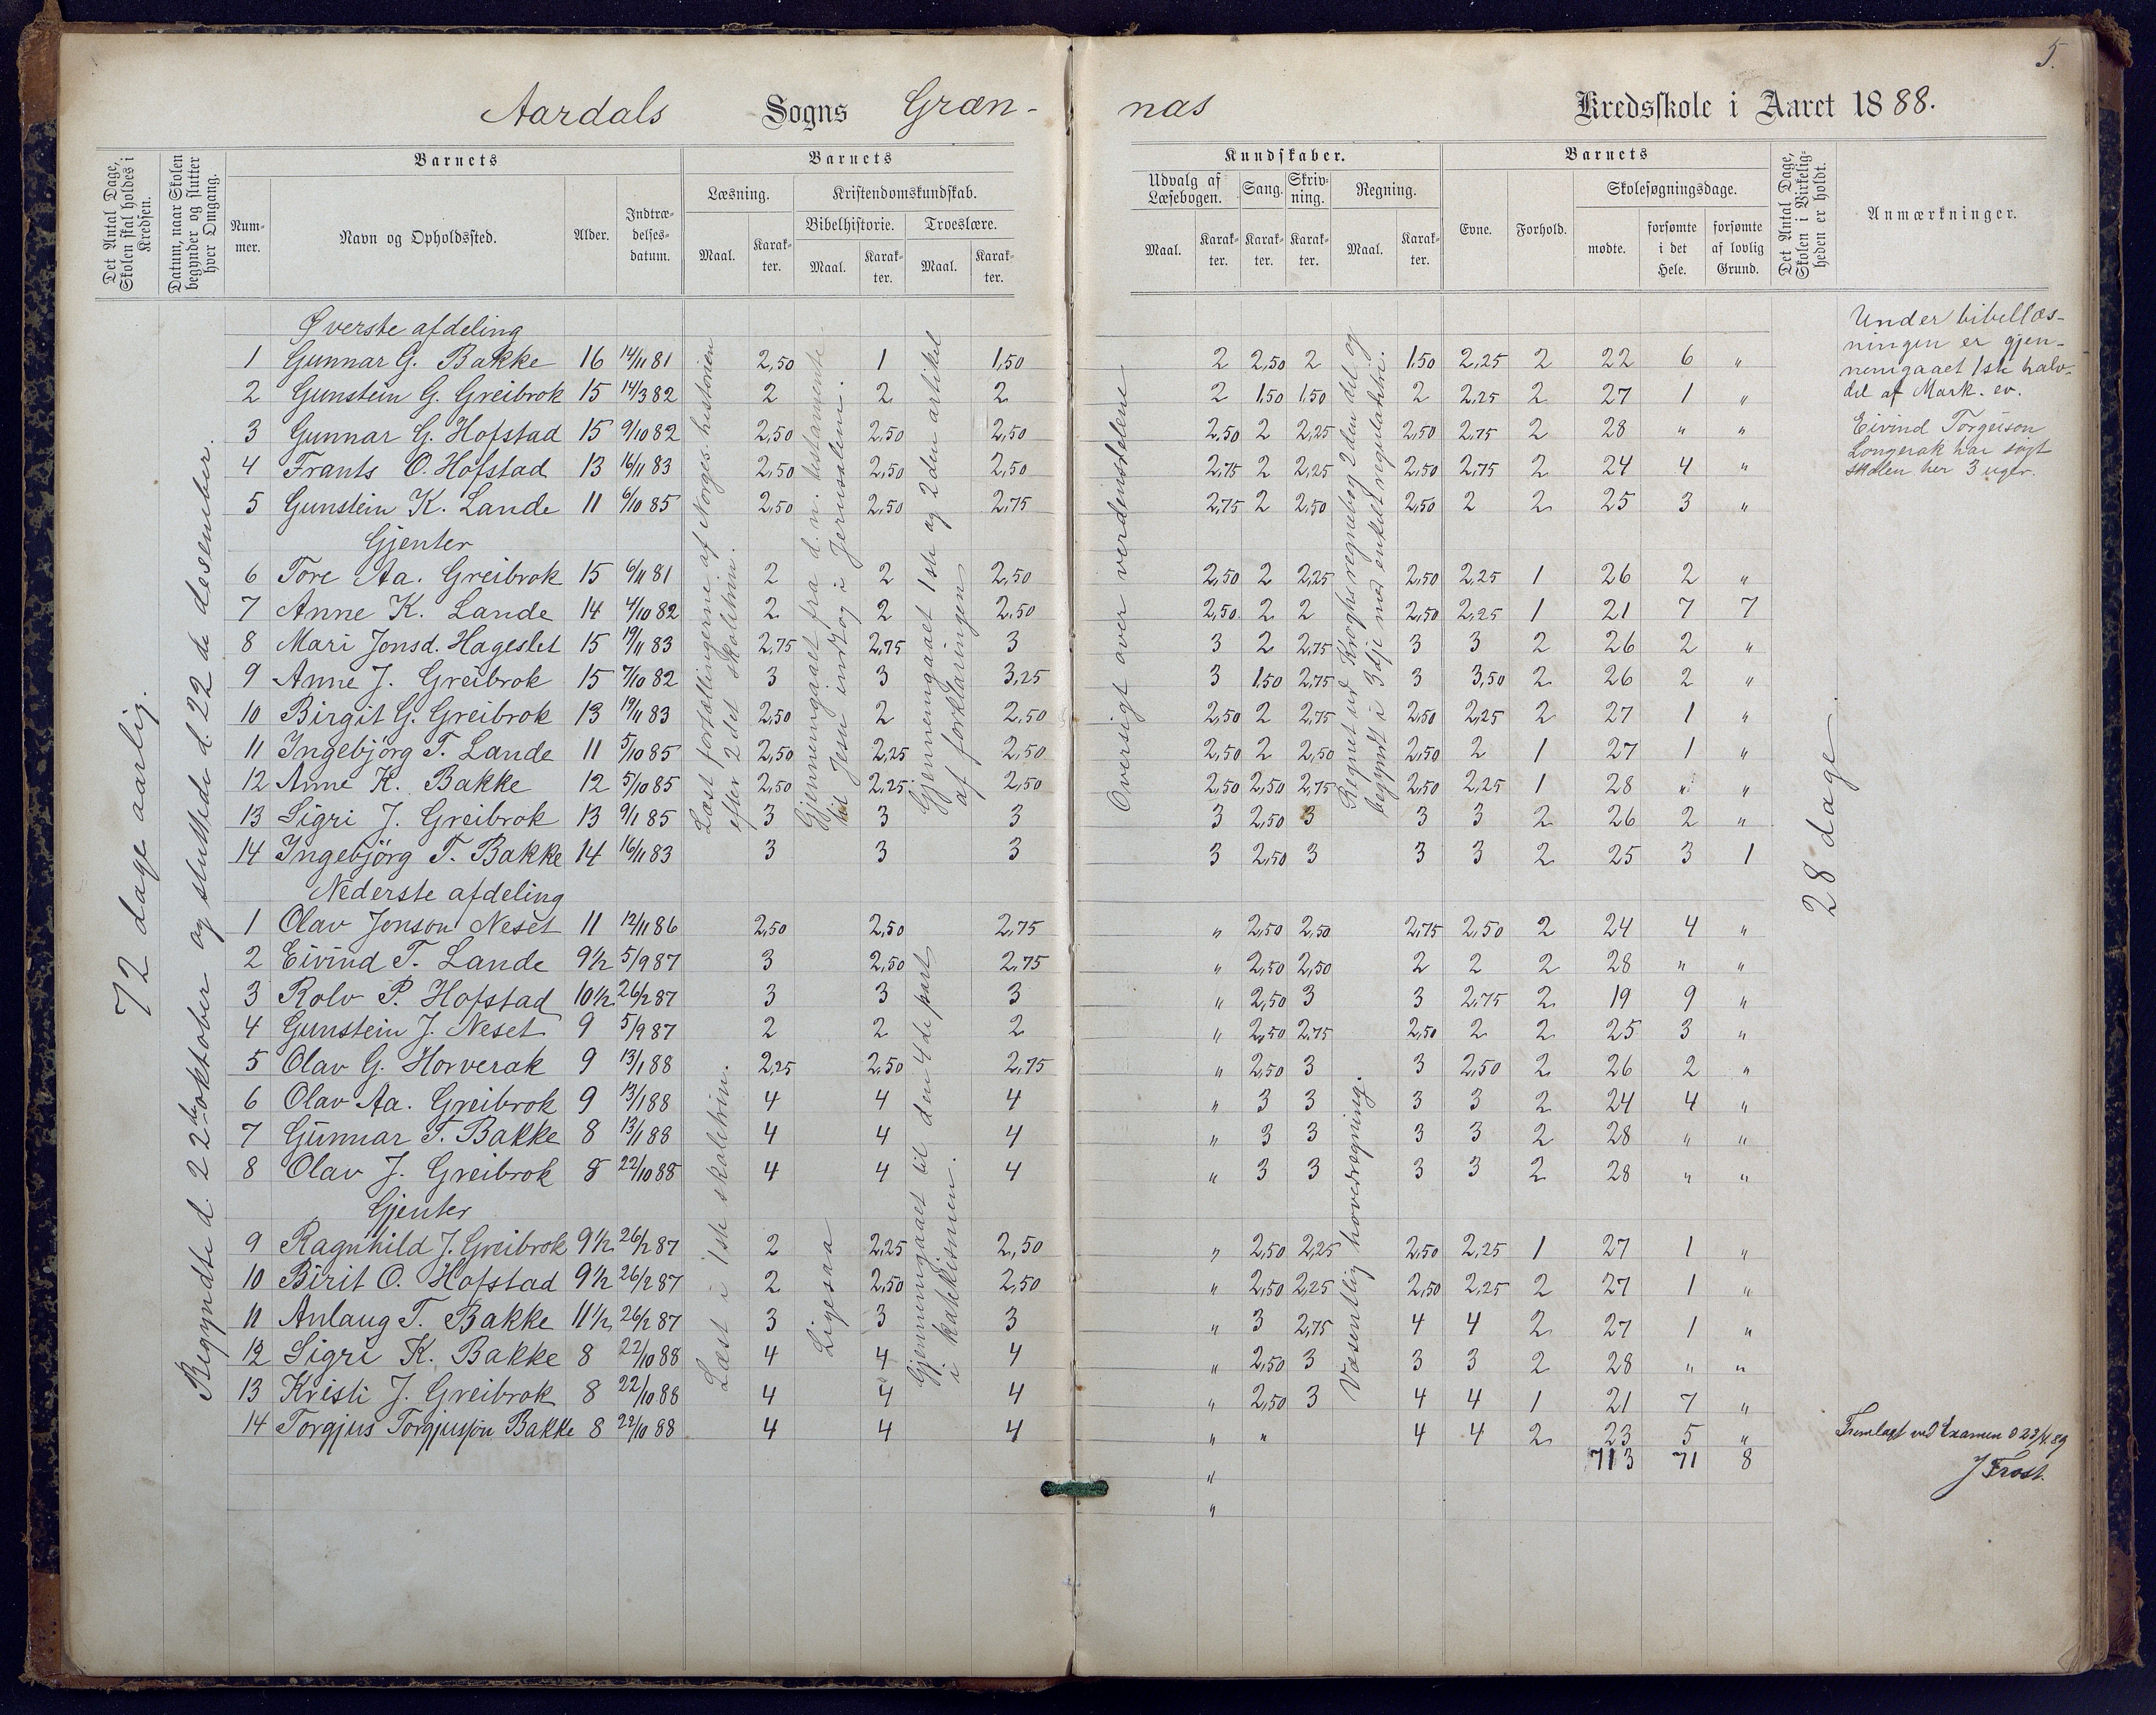 5.
Aardals Sogns Græn-
nas Kredsskole i Aaret 1888.
Det Antal Dage, Skolen skal holdes i Kredsen.
Datum, naar Skolen begynder og slutter hver Omgang.
Barnets
Num-mer.
Navn og Opholdssted.
Alder.
Indtræ-delses-datum.
Barnets
Læsning.
Maal.
Karak-ter.
Kristendomskundskab.
Bibelhistorie.
Maal.
Karak-ter.
Troeslære.
Maal.
Karak-ter.
Kundskaber.
Udvalg af Læsebogen.
Maal.
Karak-ter.
Sang.
Karak-ter.
Skriv-ning.
Karak-ter.
Regning.
Maal.
Karak-ter.
Barnets
Evne.
Forhold.
Skolesøgningsdage.
mødte.
forsømte i det Hele.
forsømte af lovlig Grund.
Det Antal Dage, Skolen i Virkelig-heden er holdt.
Anmærkninger.
72 dage aarlig.
Begyndte d. 22de oktober og sluttede d. 22de desember.
Øverste afdeling
1 Gunnar G. Bakke 16 14/11 81 2,50 1 1,50 2 2,50 2 1,50 2,25 2 22 6 "
2 Gunstein G. Greibrok 15 14/3 82 2 2 2 2 1,50 1,50 2 2,25 2 27 1 "
3 Gunnar G. Hofstad 15 9/10 82 2,50 2,50 2,50 2,50 2 2,25 2,50 2,75 2 28 " "
4 Frants O. Hofstad 13 16/11 83 2,50 2,50 2,50 2,75 2 2,25 2,50 2,75 2 24 4 "
5 Gunstein K. Lande 11 6/10 85 2,50 2,50 2,75 2,75 2 2,50 2,50 2 2 25 3 "
Gjenter
6 Tore Aa. Greibrok 15 6/11 81 2 2 2,50 2,50 2 2,25 2,50 2,25 1 26 2 "
7 Anne K. Lande 14 4/10 82 2 2 2,50 2,50 2 2 2,50 2,25 1 21 7 7
8 Mari Jonsd. Hageslet 15 19/11 83 2,75 2,75 3 3 2 2,75 3 3 2 26 2 "
9 Anne J. Greibrok 15 7/10 82 3 3 3,25 3 1,50 2,75 3 3,50 2 26 2 "
10 Birgit G. Greibrok 13 19/11 83 2,50 2 2,50 2,50 2 2,75 2,50 2,25 2 27 1 "
11 Ingebjörg T. Lande 11 5/10 85 2,50 2,25 2,50 2,50 2 2,50 2,50 2 1 27 1 "
12 Anne K. Bakke 12 5/10 85 2,50 2,25 2,50 2,50 2,50 2,75 2,50 2,25 1 28 " "
13 Sigri J. Greibrok 13 9/1 85 3 3 3 3 2,50 3 3 3 2 26 2 "
14 Ingebjörg T. Bakke 14 16/11 83 3 3 3 3 2,50 3 3 3 2 25 3 1
Læst fortællingerne af Norges historien
efter 2det skoletrin.
Gjennemgaaet fra d. n. testamente
til Jesu indtog i Jerusalem.
Gjennemgaaet 1ste og 2den artikel
af forklaringen
Oversigt over verdensdelene
Regnet ud Kroghs regnebog 2den del og
begyndt i 3dje med enkelt reguladetri.
Nederste afdeling
1 Olav Jonson Neset 11 12/11 86 2,50 2,50 2,75 " 2,50 2,50 2,75 2,50 2 24 4 "
2 Eivind T. Lande 9 1/2 5/9 87 3 2,50 2,75 " 2,50 2,50 2 2 2 28 " "
3 Rolv P. Hofstad 10 1/2 26/2 87 3 3 3 " 2,50 3 3 2,75 2 19 9 "
4 Gunstein J. Neset 9 5/9 87 2 2 2 " 2,50 2,75 2,50 2 2 25 3 "
5 Olav G. Horverak 9 13/1 88 2,25 2,50 2,75 " 2,50 3 3 2,50 2 26 2 "
6 Olav Aa. Greibrok 9 13/1 88 4 4 4 " 3 3 3 3 2 24 4 "
7 Gunnar T. Bakke 8 13/1 88 4 4 4 " 3 3 3 3 2 28 " "
8 Olav J. Greibrok 8 22/10 88 4 4 4 " 3 3 3 3 2 28 " "
Gjenter
9 Ragnhild J. Greibrok 9 1/2 26/2 87 2 2,25 2,50 " 2,50 2,25 2,50 2,25 1 27 1 "
10 Birit O. Hofstad 9 1/2 26/2 87 2 2,50 2,50 " 2,50 2,25 2,50 2,25 2 27 1 "
11 Anlaug T. Bakke 11 1/2 26/2 87 3 3 3 " 3 2,75 4 4 2 27 1 "
12 Sigri K. Bakke 8 22/10 88 4 4 4 " 2,50 3 3 3 2 28 " "
13 Kristi J. Greibrok 8 22/10 88 4 4 4 " 2,50 3 4 4 1 21 7 "
14 Torgjus Torgjusson Bakke 8 22/10 88 4 4 4 " " 4 4 2 23 5 "
" 713 71 8
"
Læst i 1ste skoletrin.
Ligesaa
Gjennemgaaet til den 4de part
i katekismen.
Væsentlig hovedregning.
28 dage
Under bibellæs-
ningen er gjen-
nemgaaet 1ste halv-
del af Mark. ev.
Eivind Torgeison
Longerak har søgt
skolen her 3 uger.
Fremlagt ved Examen d 23/4 89
J Frost.